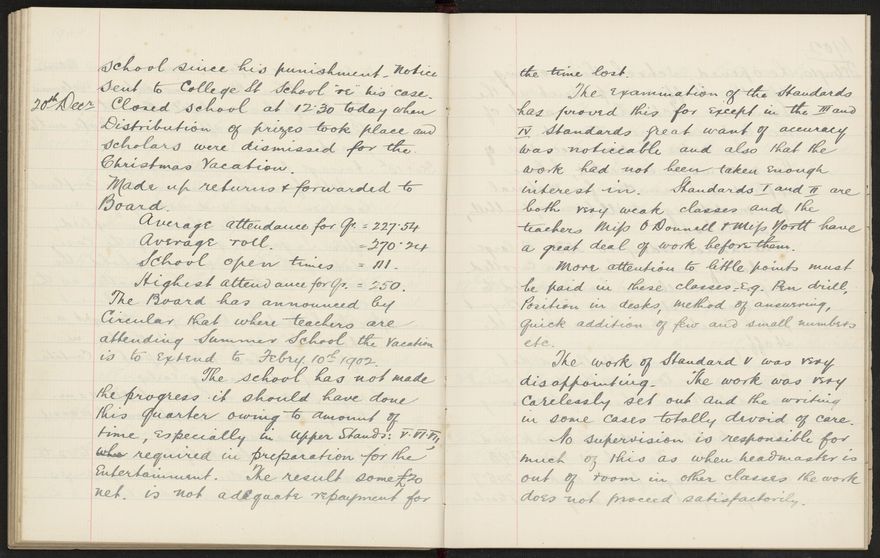 school since his punishment. Notice
sent to College St School re his case.
20th Decr Closed school at 12.30 today when
Distribution of prizes took place and
scholars were dismissed for the
Christmas Vacation.
Made up returns & forwarded to
Board.
Average attendance for Qr. = 227.54
Average roll. = 270.24
School open times = 111.
Highest attendance for Qr. = 250.
The Board has announced by
Circular that where teachers are
attending Summer School the vacation
is to extend to Febry. 10th 1902.
The school has not made
the progress it should have done
this quarter owing to amount of
time, especially in upper Stands: V. VI VII,
who required in preparation for the
Entertainment. The result some £20
net. is not adequate repayment for
the time lost.
The examination of the Standards
has proved this for except in the III and
IV Standards great want of accuracy
was noticeable and also that the
work had not been taken enough
interest in. Standards I and II are
both very weak classes and the
teachers Miss O'Donnell & Miss North have
a great deal of work before them.
More attention to little points must
be paid in these classes, e.g. Pen drill,
Position in desks, method of answering,
quick addition of few and small numbers
etc.
The work of Standard V was very
disappointing. The work was very
carelessly set out and the writing
in some cases totally devoid of care.
No supervision is responsible for
much of this as when headmaster is
out of room in other classes the work
does not proceed satisfactorily.